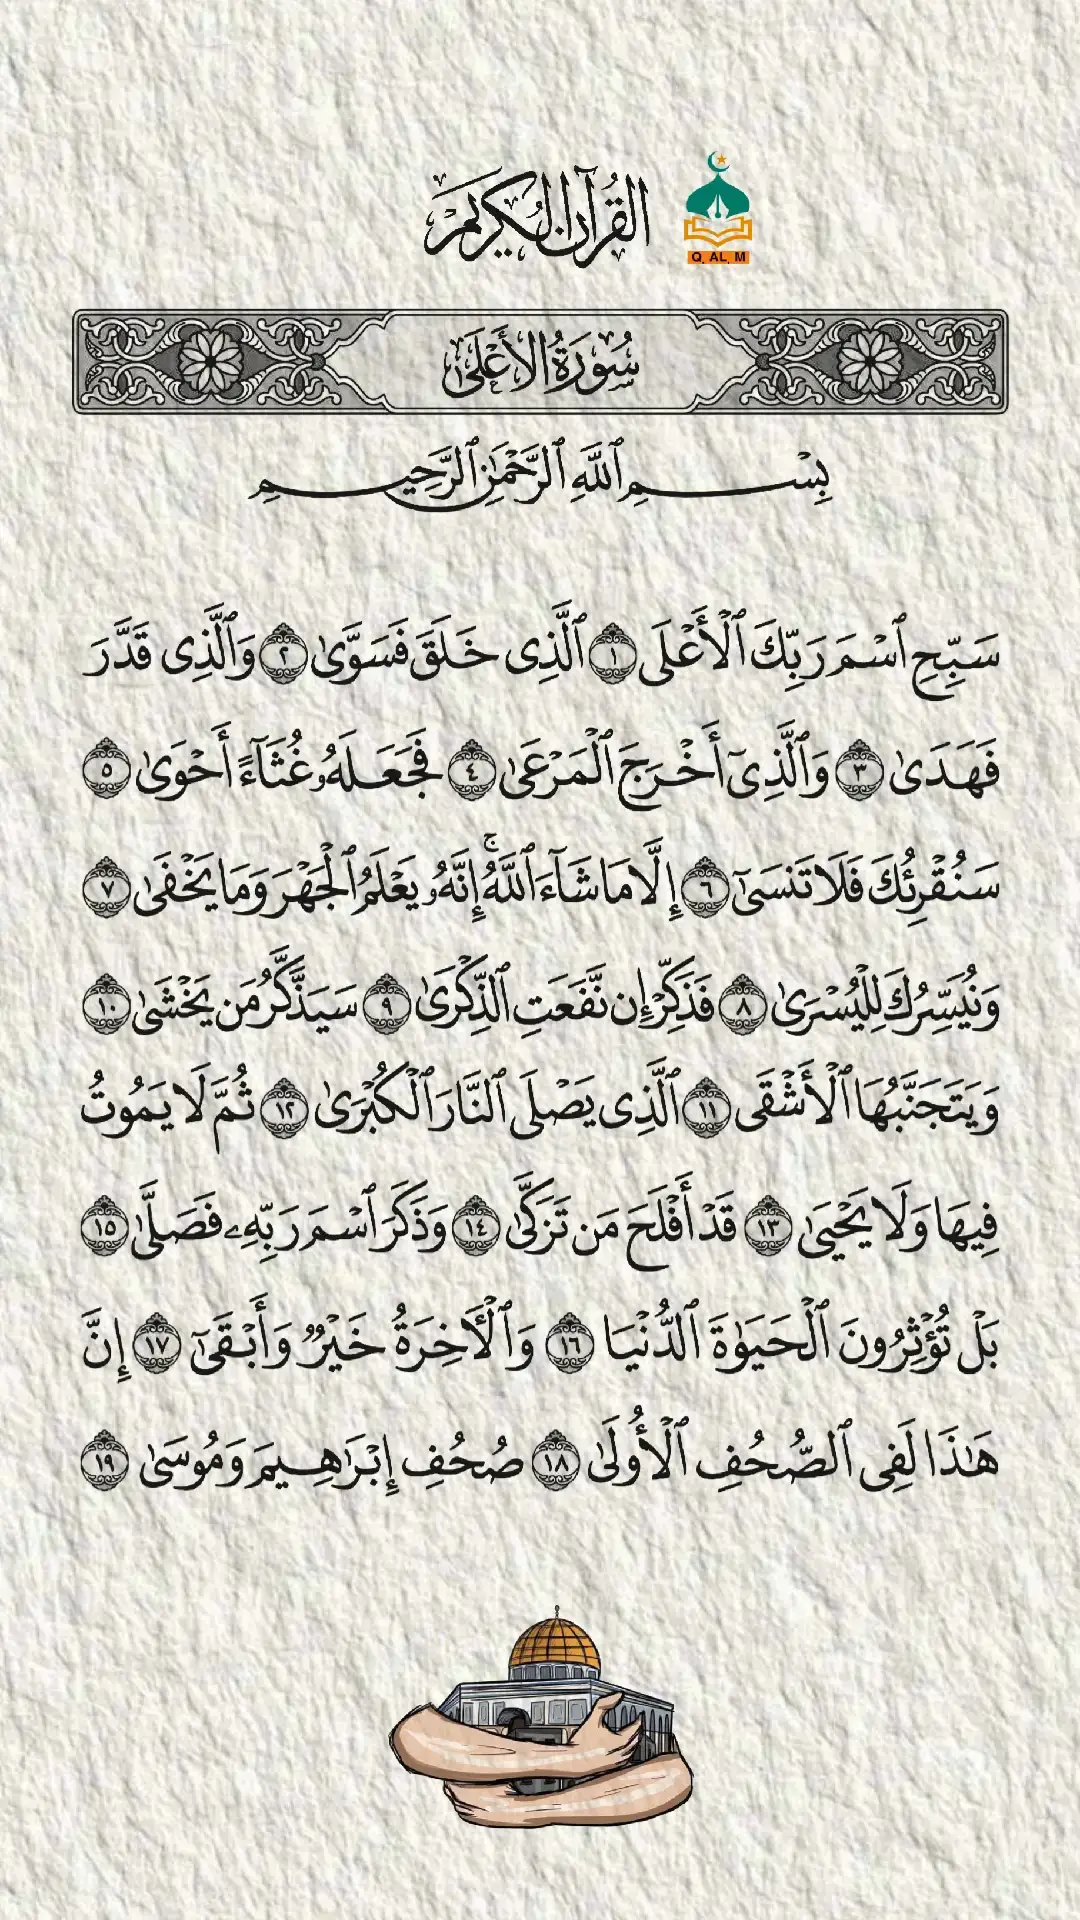 القُرآن الكريم
Q. AL. M
سُورَةُ الأَعْلَىٰ
بِسْمِ ٱللَّهِ ٱلرَّحْمَٰنِ ٱلرَّحِيمِ
سَبِّحِ ٱسْمَ رَبِّكَ ٱلْأَعْلَى ١ ٱلَّذِى خَلَقَ فَسَوَّىٰ ٢ وَٱلَّذِى قَدَّرَ
فَهَدَىٰ ٣ وَٱلَّذِىٓ أَخْرَجَ ٱلْمَرْعَىٰ ٤ فَجَعَلَهُۥ غُثَآءً أَحْوَىٰ ٥
سَنُقْرِئُكَ فَلَا تَنسَىٰٓ ٦ إِلَّا مَا شَآءَ ٱللَّهُ ۚ إِنَّهُۥ يَعْلَمُ ٱلْجَهْرَ وَمَا يَخْفَىٰ ٧
وَنُيَسِّرُكَ لِلْيُسْرَىٰ ٨ فَذَكِّرْ إِن نَّفَعَتِ ٱلذِّكْرَىٰ ٩ سَيَذَّكَّرُ مَن يَخْشَىٰ ١٠
وَيَتَجَنَّبُهَا ٱلْأَشْقَى ١١ ٱلَّذِى يَصْلَى ٱلنَّارَ ٱلْكُبْرَىٰ ١٢ ثُمَّ لَا يَمُوتُ
فِيهَا وَلَا يَحْيَىٰ ١٣ قَدْ أَفْلَحَ مَن تَزَكَّىٰ ١٤ وَذَكَرَ ٱسْمَ رَبِّهِۦ فَصَلَّىٰ ١٥
بَلْ تُؤْثِرُونَ ٱلْحَيَوٰةَ ٱلدُّنْيَا ١٦ وَٱلْـَٔاخِرَةُ خَيْرٌ وَأَبْقَىٰٓ ١٧ إِنَّ
هَـٰذَا لَفِى ٱلصُّحُفِ ٱلْأُولَىٰ ١٨ صُحُفِ إِبْرَٰهِيمَ وَمُوسَىٰ ١٩